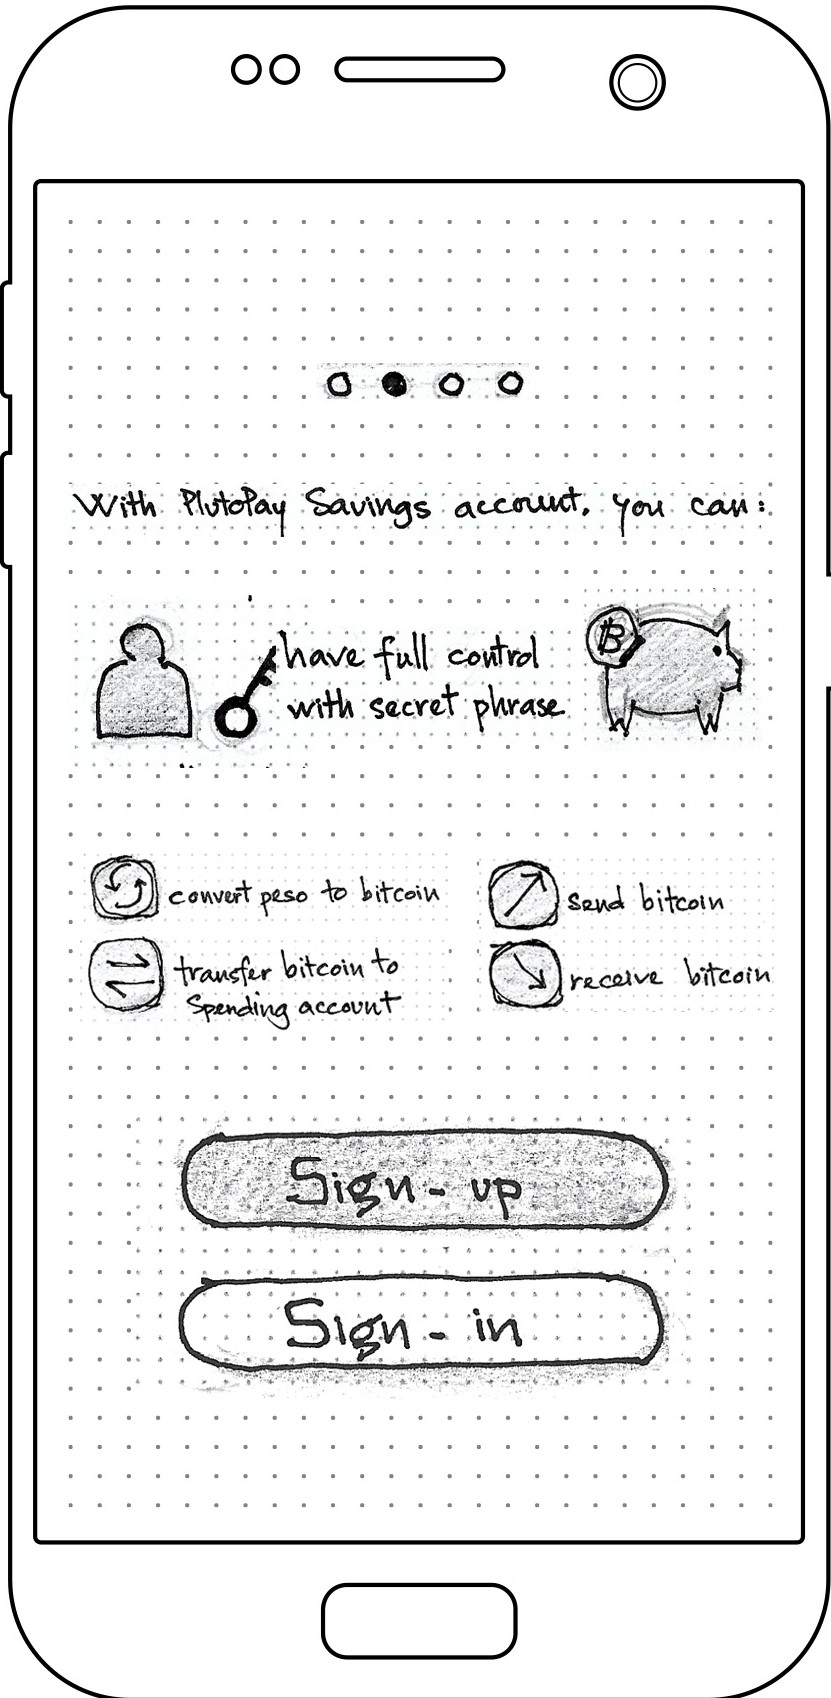 With PlutoPay Savings account, you can:
have full control
with secret phrase
B
convert peso to bitcoin
send bitcoin
transfer bitcoin to
Spending account
receive bitcoin
Sign-up
Sign-in